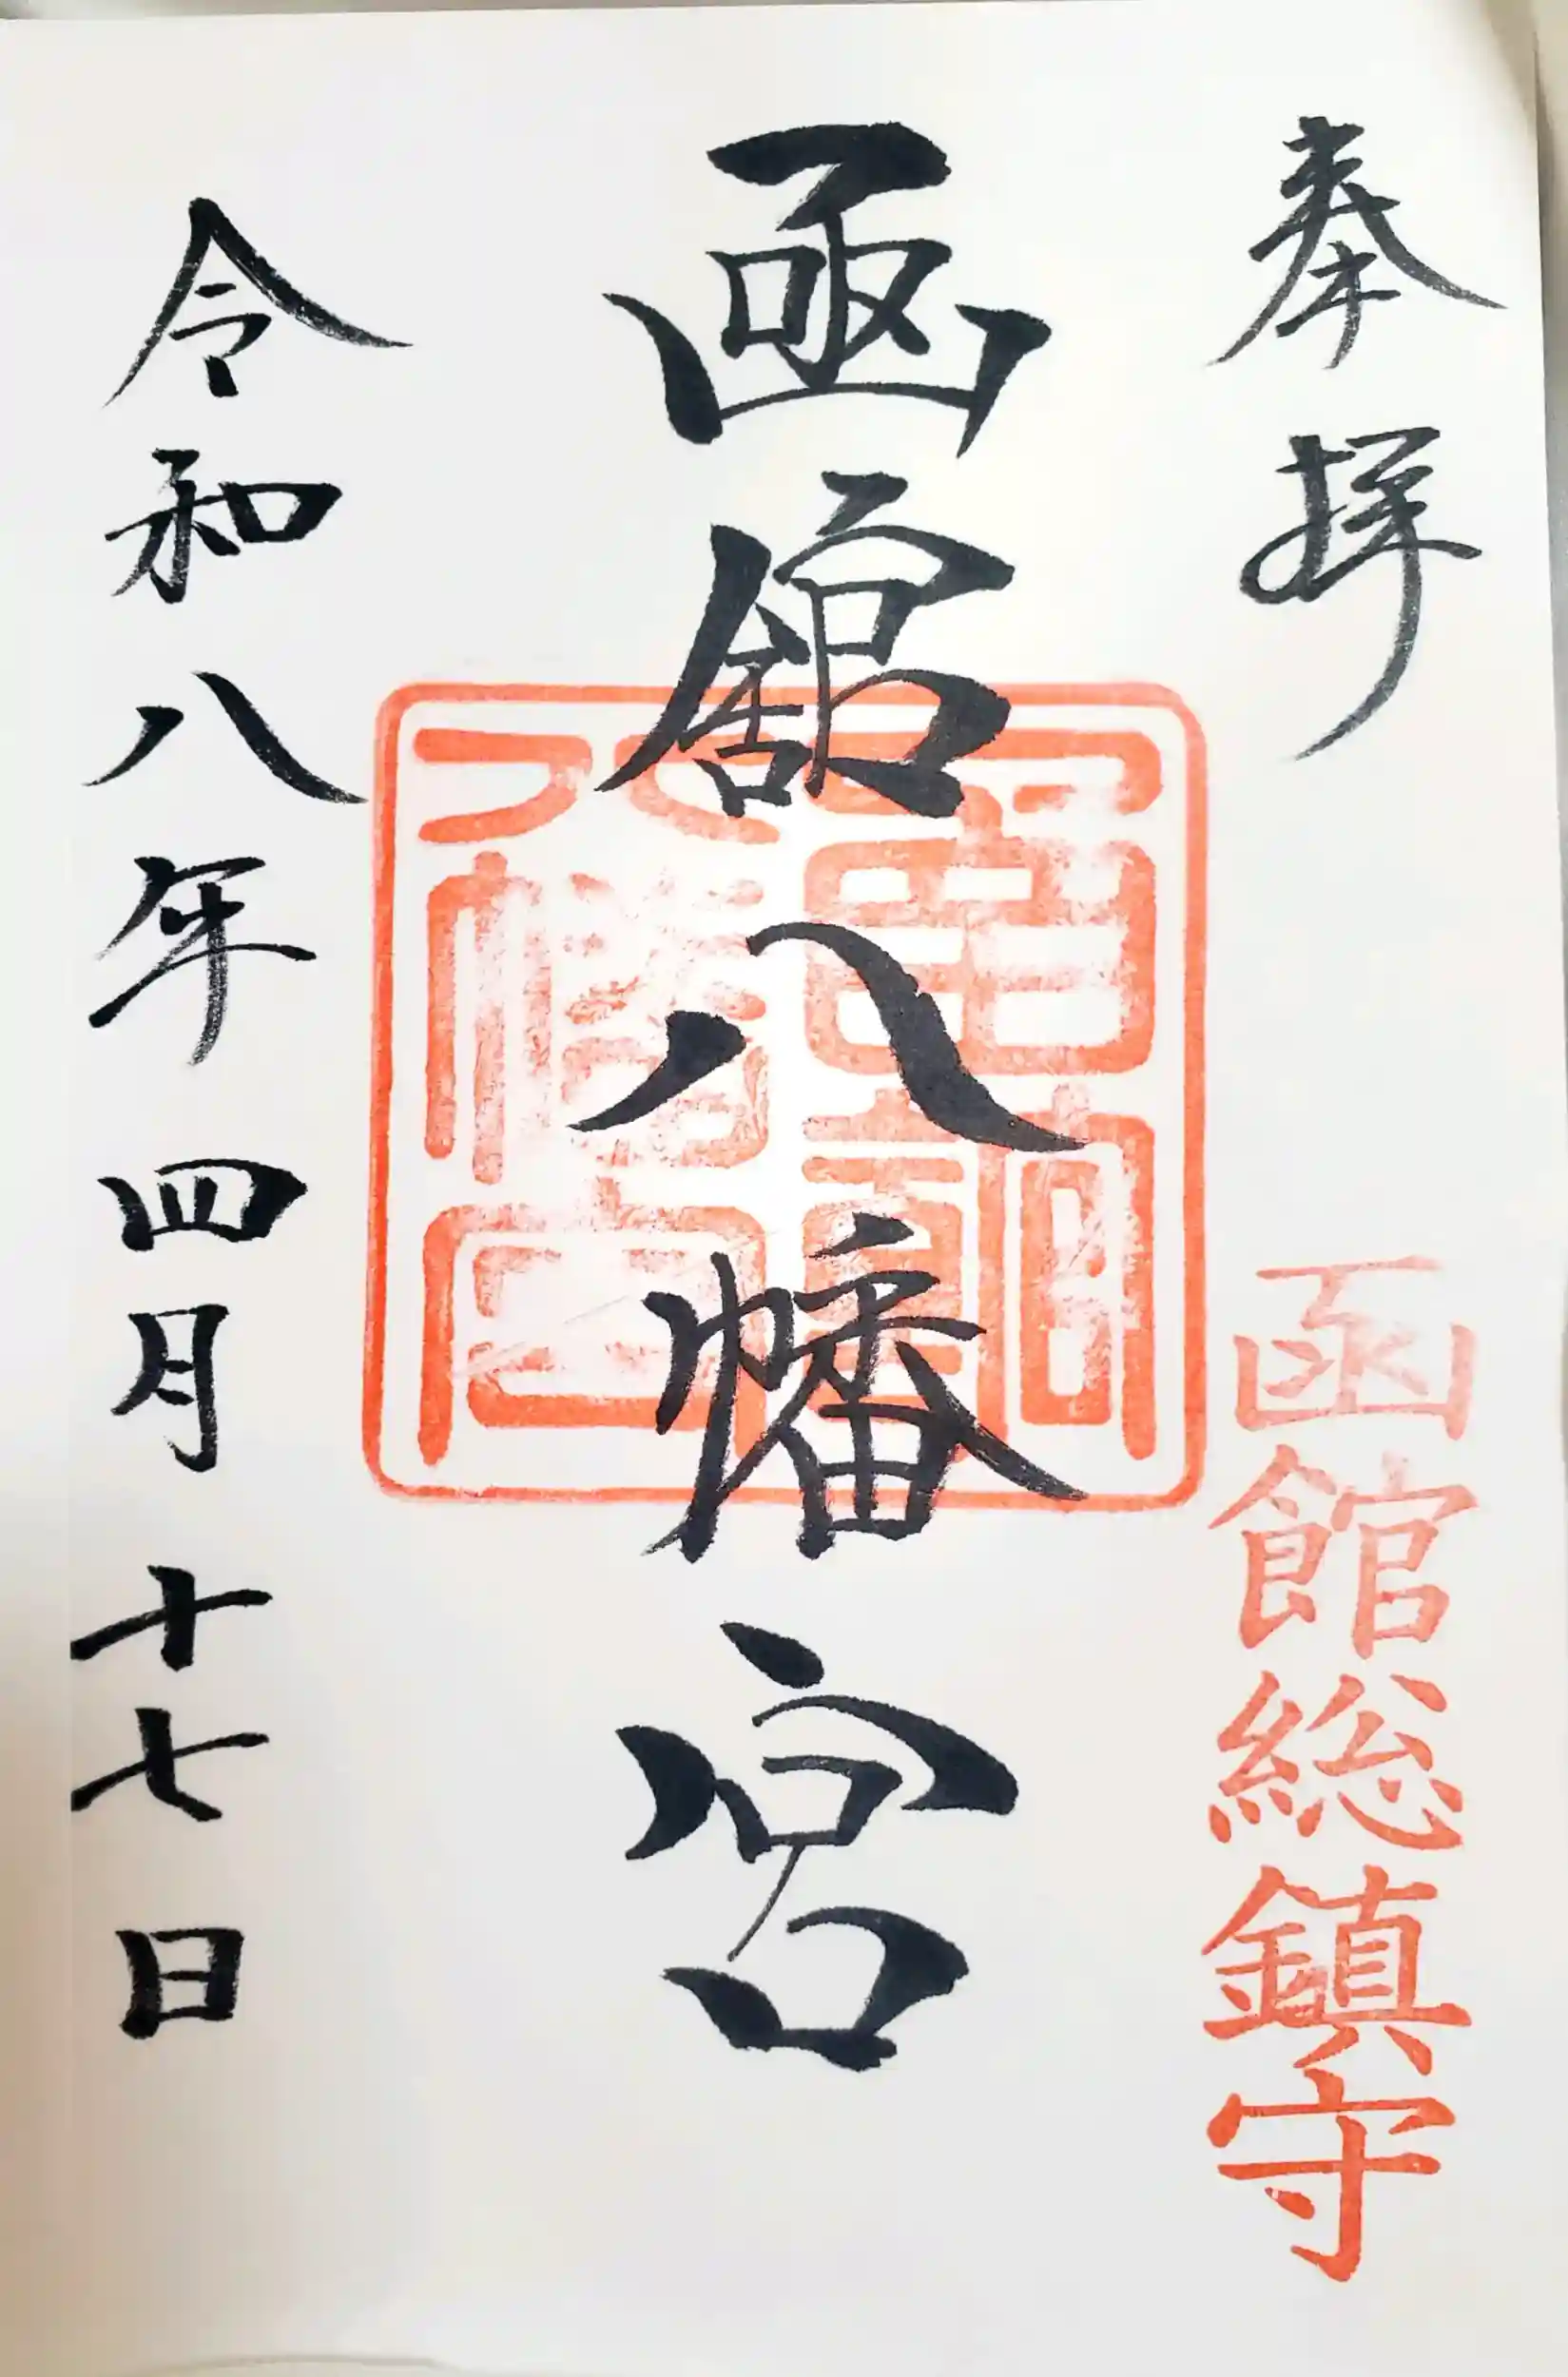 奉拝
函館総鎮守
函館八幡宮
令和八年四月十七日